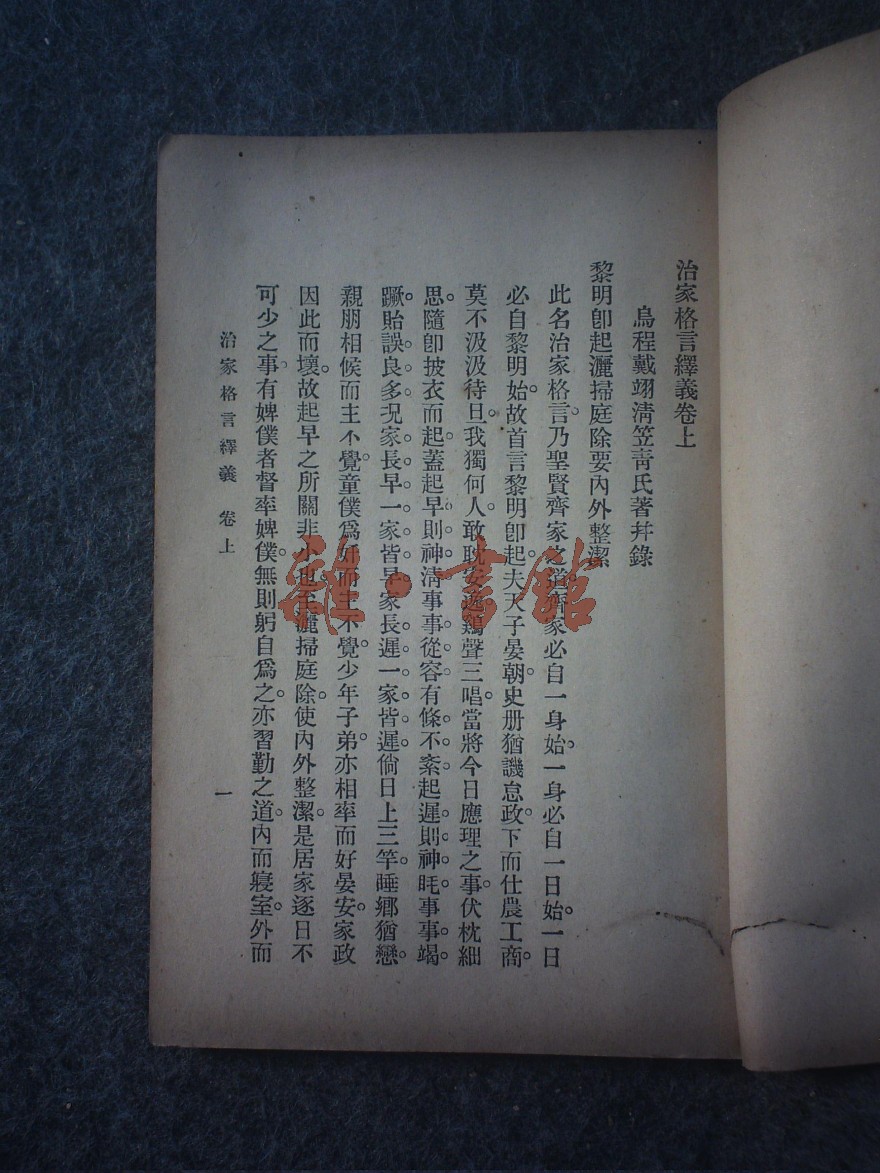 治家格言繹義卷上
烏程戴翊淸笠靑氏著幷錄
黎明卽起灑掃庭除要內外整潔
此名治家格言。乃聖賢齊家之道。齊家必自一身始。一身必自一日始。一日
必自黎明始。故首言黎明卽起。夫天子晏朝。史册猶譏怠政。下而仕農工商。
莫不汲汲待旦。我獨何人。敢耽安逸。鷄聲三唱。當將今日應理之事。伏枕細
思。隨卽披衣而起。蓋起早則神淸。事事從容有條不紊。起遲則神眊。事事竭
蹶。貽誤良多。況家長早一家皆早。家長遲一家皆遲。倘日上三竿。睡鄉猶戀。
親朋相候而主不覺。童僕爲奸而主不覺。少年子弟。亦相率而好晏安。家政
因此而壞。故起早之所關非小也。至灑掃庭除。使內外整潔。是居家逐日不
可少之事。有婢僕者督率婢僕。無則躬自爲之。亦習勤之道。內而寢室。外而
治家格言繹義 卷上
一
雜·書館